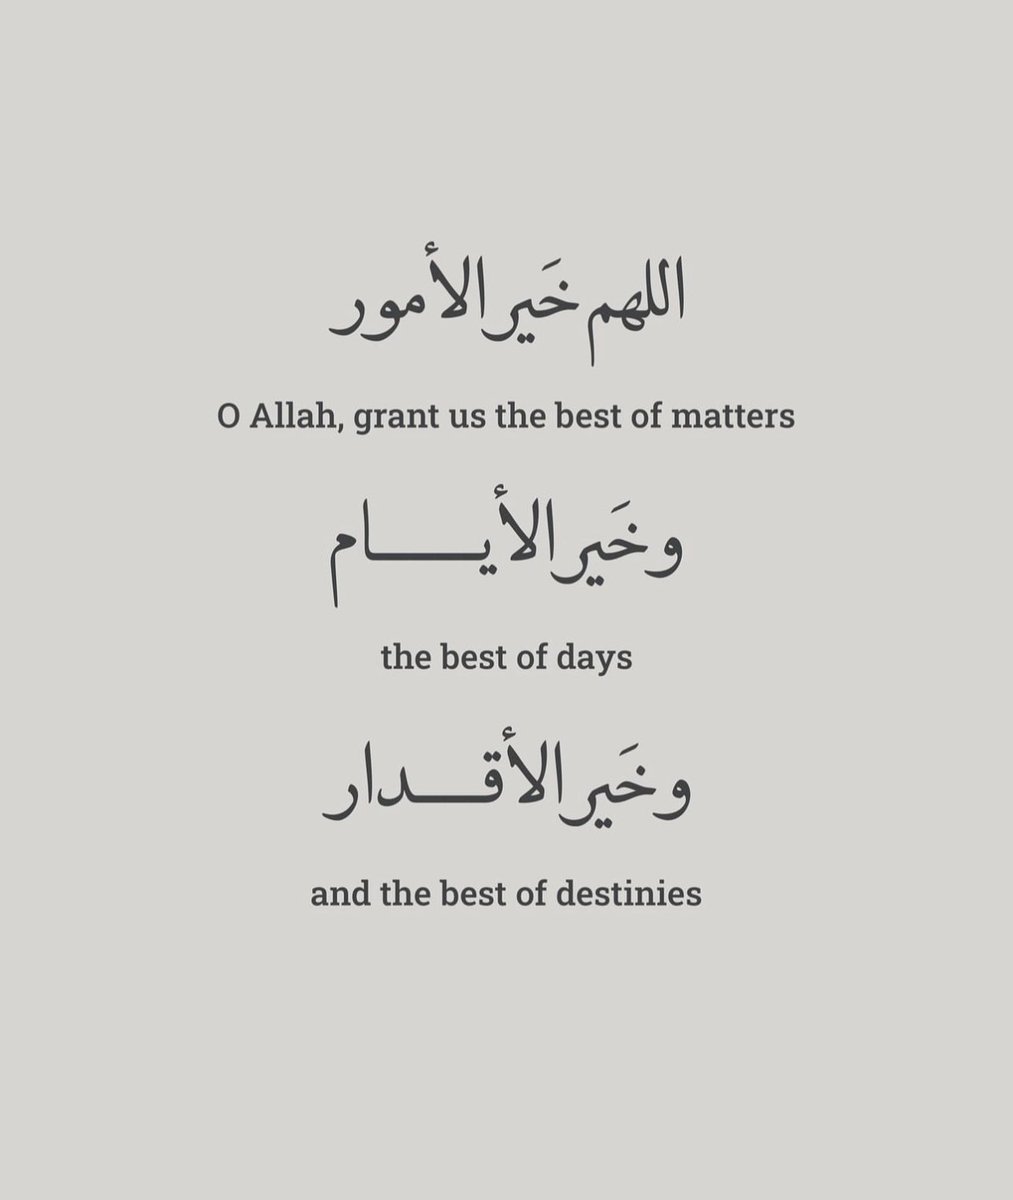 اللهم خَير الأمور
O Allah, grant us the best of matters
وخَير الأيـــــام
the best of days
وخَير الأقـــدار
and the best of destinies